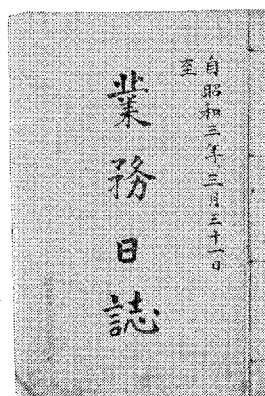 自昭和三年三月三十一日
至
業務日誌